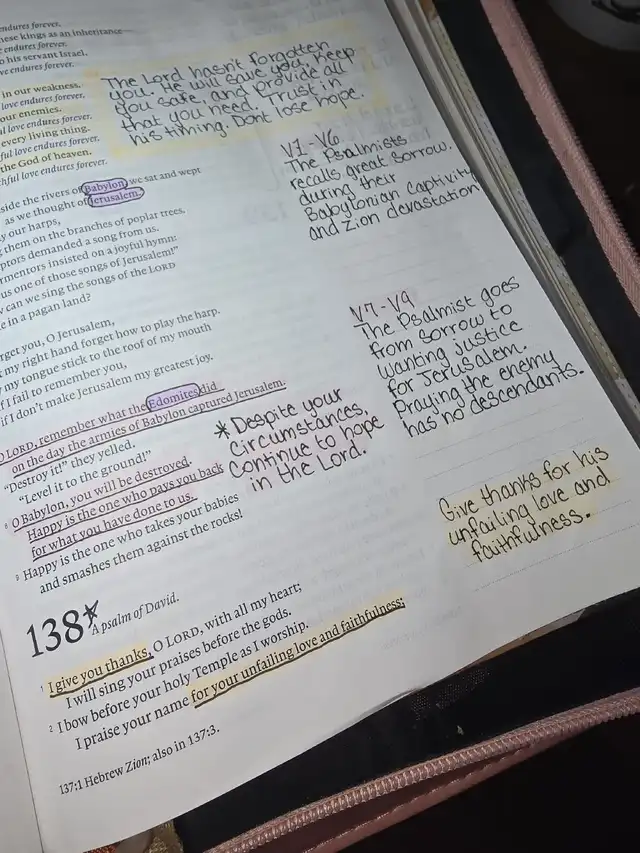 endures forever.
hese kings as an inheritance—
e endures forever.
o his servant Israel.
ve endures forever.
in our weakness.
love endures forever.
our enemies.
l love endures forever.
every living thing.
ful love endures forever.
the God of heaven.
hful love endures forever.
The Lord hasn't forgotten
you. He will save you, keep
you safe, and provide all
that you need. Trust in
his timing. Dont lose hope.
side the rivers of Babylon, we sat and wept
as we thought of Jerusalem.
y our harps,
them on the branches of poplar trees.
ptors demanded a song from us.
rmentors insisted on a joyful hymn:
us one of those songs of Jerusalem!"
w can we sing the songs of the LORD
e in a pagan land?
rget you, O Jerusalem,
t my right hand forget how to play the harp.
my tongue stick to the roof of my mouth
if I fail to remember you,
if I don't make Jerusalem my greatest joy.
O LORD, remember what the Edomites did
on the day the armies of Babylon captured Jerusalem.
"Destroy it!" they yelled.
"Level it to the ground!"
8 O Babylon, you will be destroyed.
Happy is the one who pays you back
for what you have done to us.
9 Happy is the one who takes your babies
and smashes them against the rocks!
V1-V6
The Psalmists
recalls great sorrow.
during their
Babylonian Captivity
and Zion devastation
V7-V9
The Psalmist goes
from sorrow to
wanting justice
for Jerusalem.
Praying the enemy
has no descendants.
*Despite your
circumstances,
continue to hope
in the Lord.
Give thanks for his
unfailing love and
faithfulness.
138*
A psalm of David.
1 I give you thanks, O LORD, with all my heart;
I will sing your praises before the gods.
2 I bow before your holy Temple as I worship.
I praise your name for your unfailing love and faithfulness;
137:1 Hebrew Zion; also in 137:3.